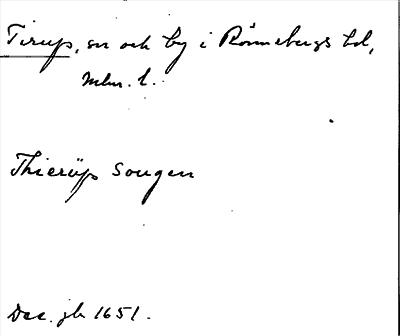 Tirup, sn och by i Rönnebergs hd,
Mlm. l.
Thierüp Sougen
Dec. jb 1651.